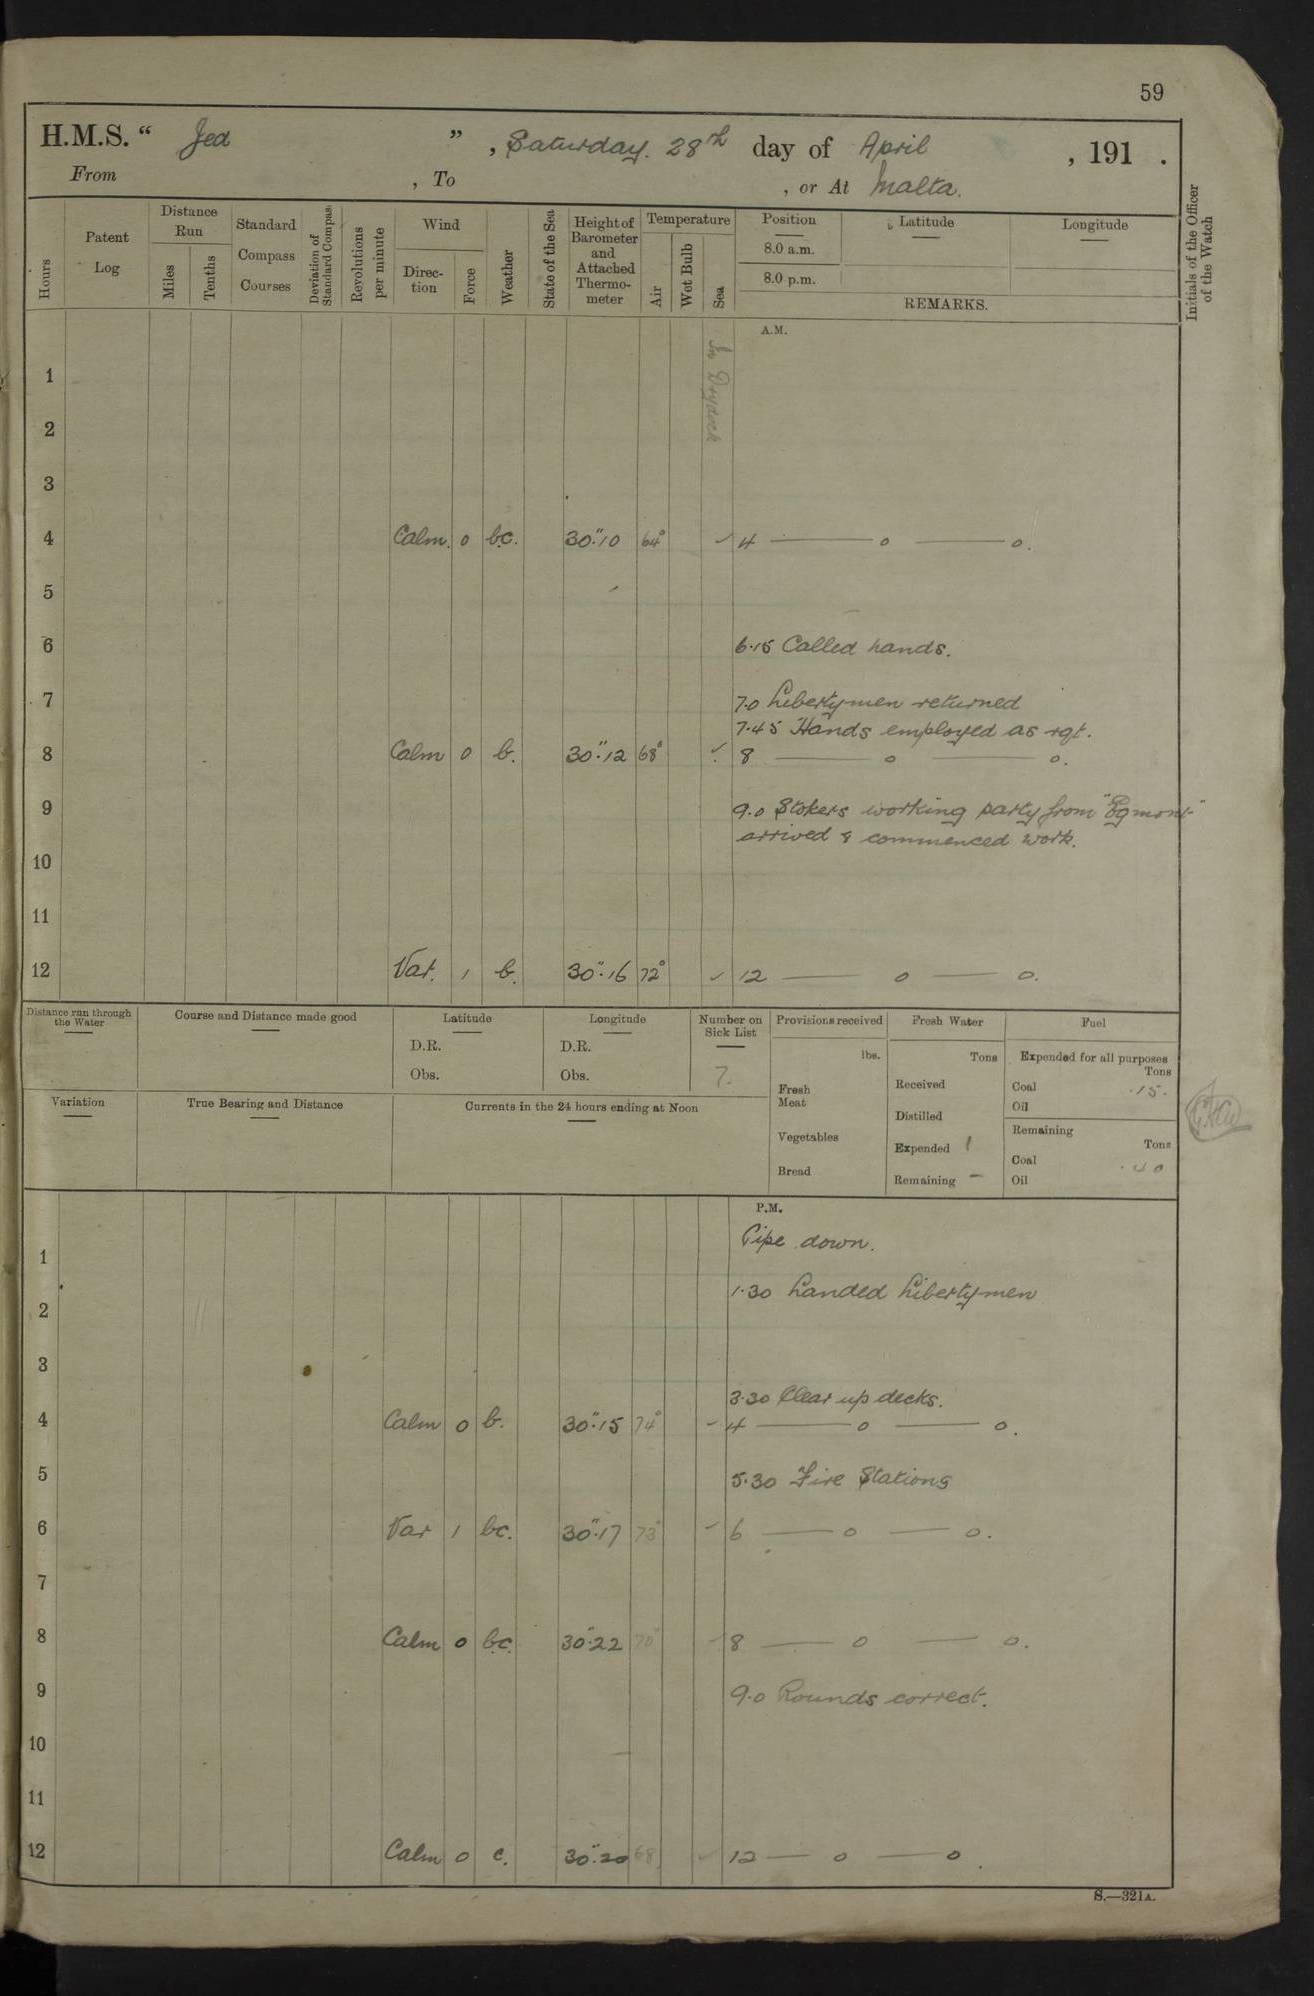 59
H.M.S. “ Jed ” , Saturday. 28th day of April , 191 .
From , To , or At Malta.
Hours
Patent Log
Distance Run
Miles
Tenths
Standard Compass Courses
Deviation of Standard Compass
Revolutions per minute
Wind
Direction
Force
Weather
State of the Sea
Height of Barometer and Attached Thermometer
Temperature
Air
Wet Bulb
Sea
Position
8.0 a.m.
8.0 p.m.
Latitude
Longitude
REMARKS.
Initials of the Officer of the Watch
A.M.
In Drydock
1
2
3
4 Calm. 0 b.c. 30".10 64° ✓ 4 —— o —— o.
5
6 6.15 Called hands.
7 7.0 Libertymen returned
7.45 Hands employed as rqt.
8 Calm 0 b. 30".12 68° ✓ 8 —— o —— o.
9 9.0 Stokers working party from "Egmont"
arrived & commenced work.
10
11
12 Var. 1 b. 30".16 72° ✓ 12 —— o —— o.
Distance run through the Water
Course and Distance made good
Latitude
D.R.
Obs.
Longitude
D.R.
Obs.
Number on Sick List
7.
Provisions received
lbs.
Fresh Meat
Vegetables
Bread
Fresh Water
Tons
Received
Distilled
Expended 1
Remaining –
Fuel
Expended for all purposes
Tons
Coal .15.
Oil
Remaining
Tons
Coal .40
Oil
Variation
True Bearing and Distance
Currents in the 24 hours ending at Noon
P.M.
Pipe down.
1
1.30 Landed Libertymen
2
3
3.30 Clear up decks.
4 Calm 0 b. 30".15 74° ✓ 4 —— o —— o.
5 5.30 Fire Stations
6 Var 1 bc. 30".17 73° ✓ 6 —— o —— o.
7
8 Calm 0 b.c. 30".22 70° ✓ 8 —— o —— o.
9 9.0 Rounds correct.
10
11
12 Calm 0 c. 30".20 68 ✓ 12 —— o —— o.
S.—321A.